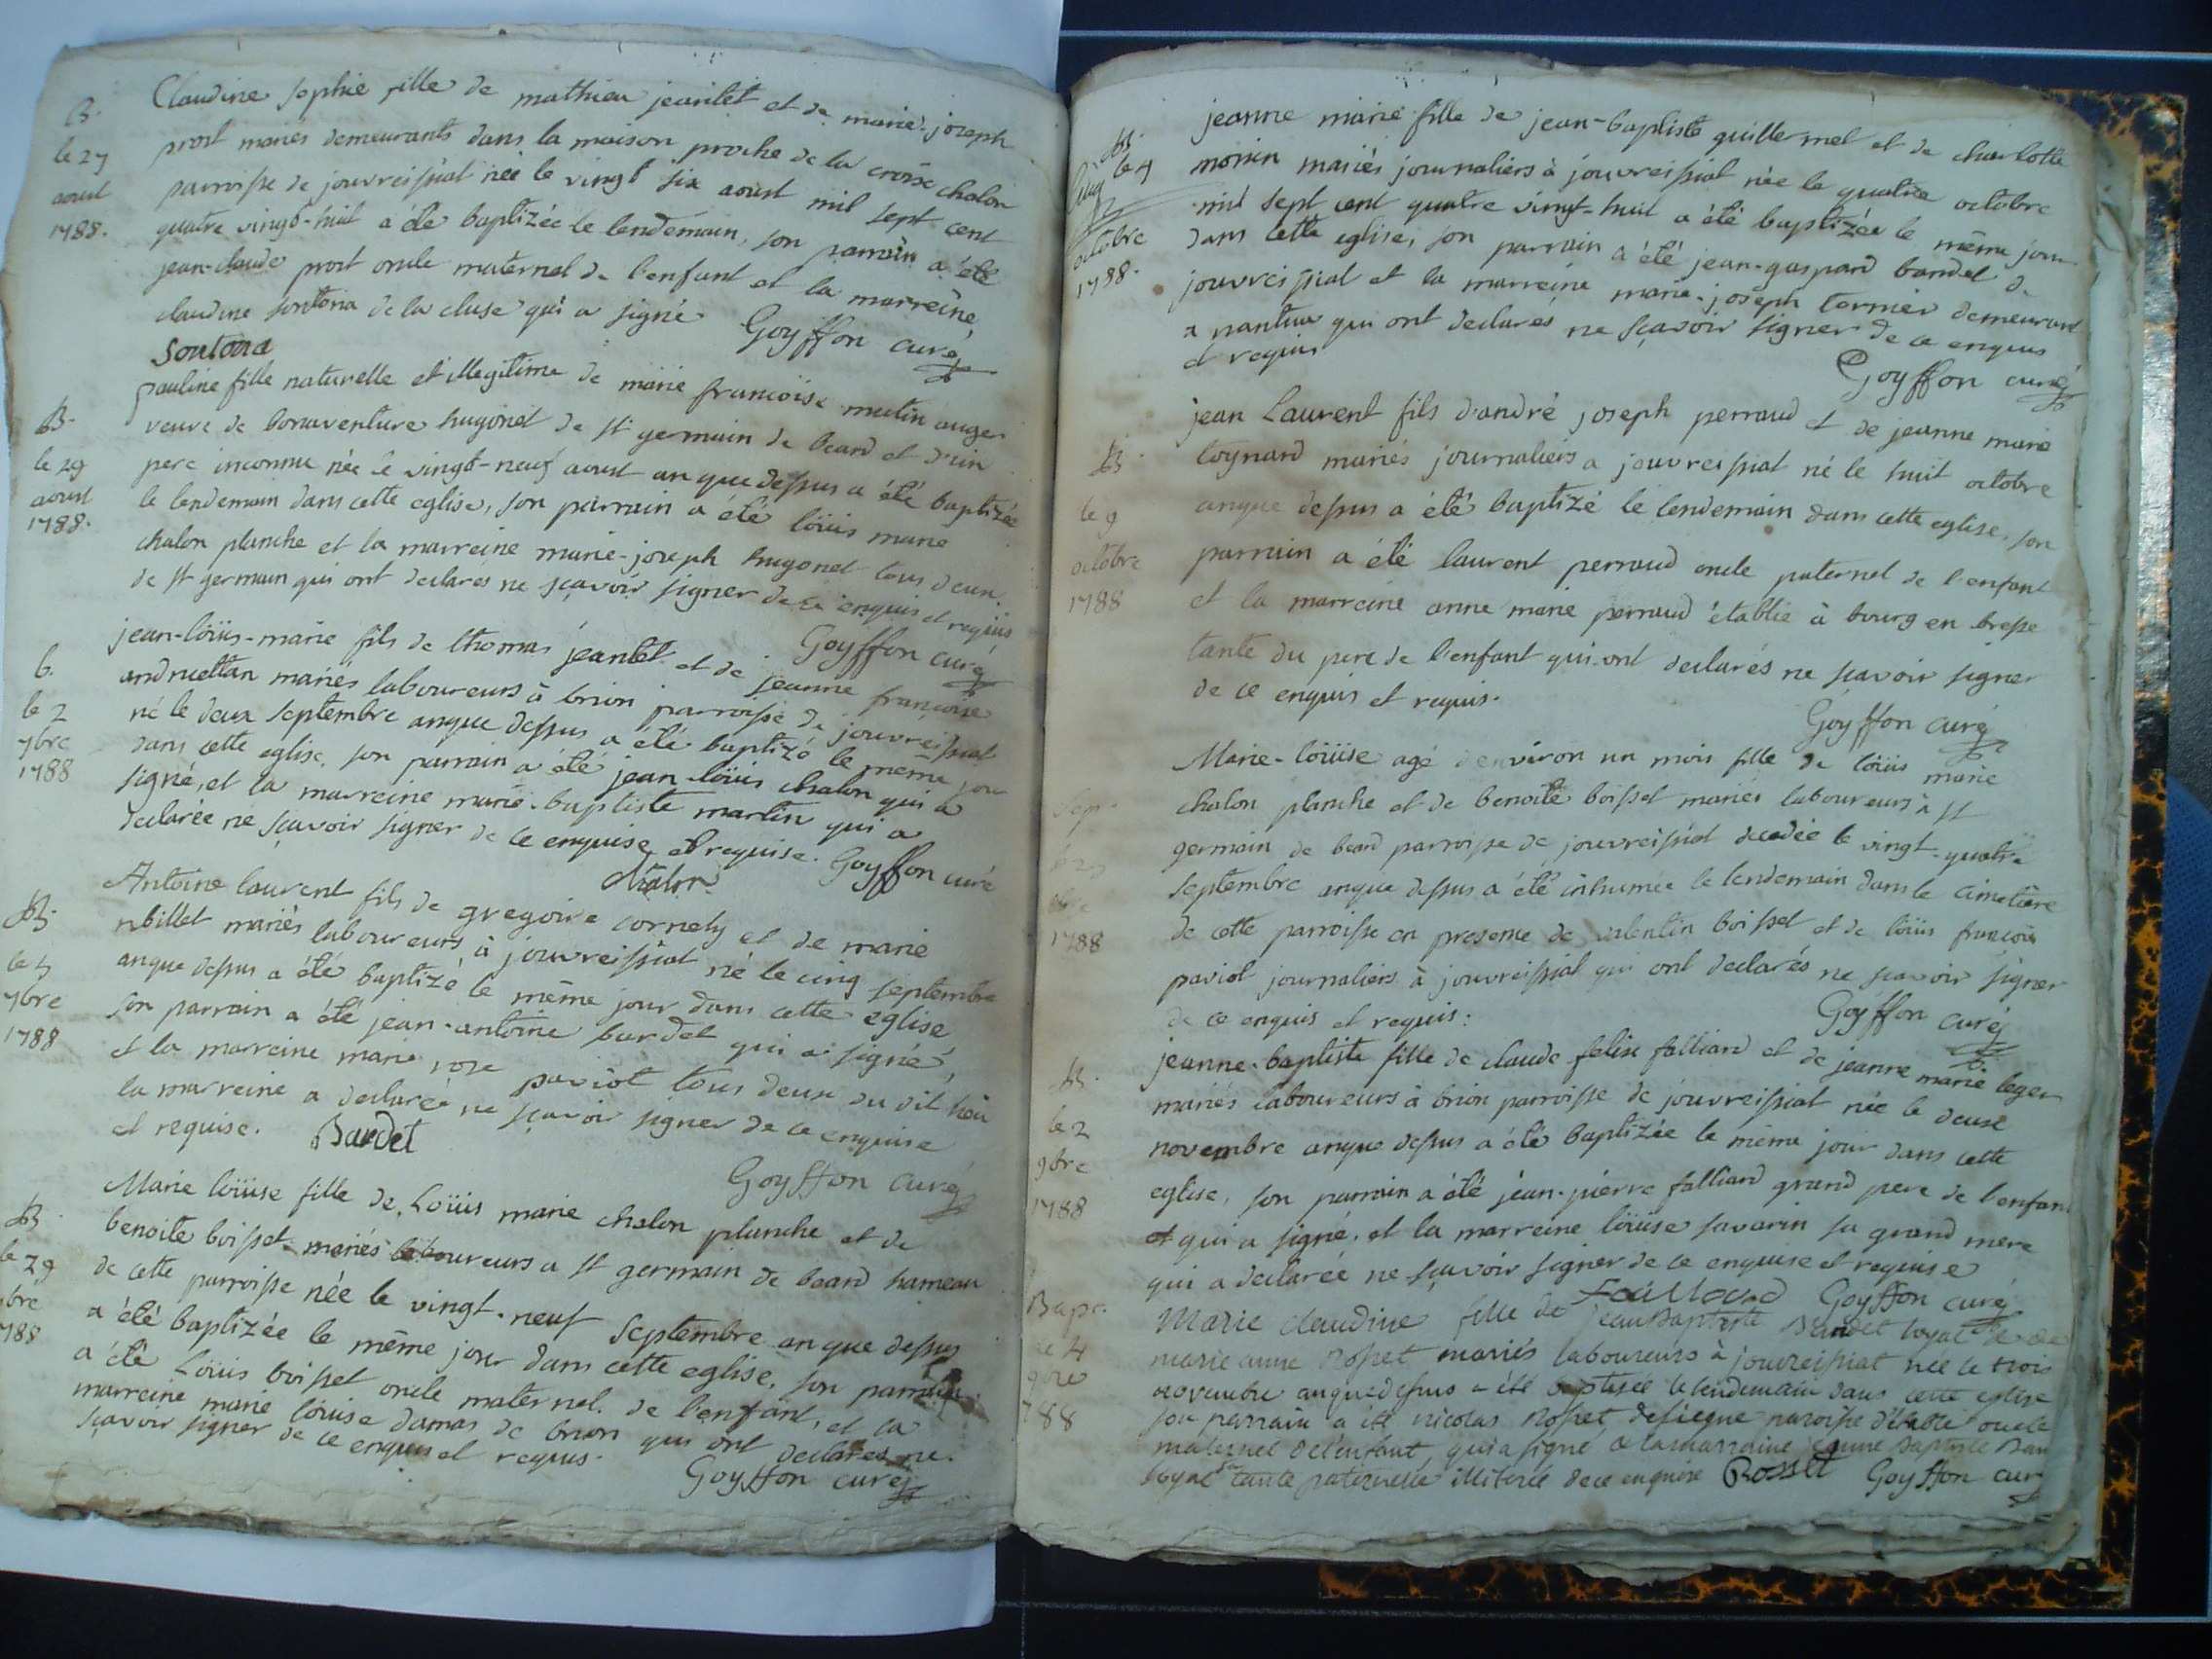 B.
le 27
aoust
1788.
Claudine sophie fille de mathieu jeantet et de marie-joseph
prost mariés demeurants dans la maison proche de la croise chalon
parroisse de jouvreissiat née le vingt six aoust mil sept cent
quatre vingt-huit a été baptizée le lendemain, son parrain a été
jean-claude prost oncle maternel de l'enfant et la marreine
claudine sontona de la cluse qui a signé Goyffon curé
Sontona
B.
le 29
aoust
1788.
pauline fille naturelle et illegitime de marie francoise mutin auger
veuve de bonaventure hugonet de st germain de beard et d'un
pere inconnu née le vingt-neuf aoust an que dessus a été baptizée
le lendemain dans cette eglise, son parrain a été loüis marie
chalon planche et la marreine marie-joseph hugonet tous deux
de st germain qui ont declarés ne sçavoir signer de ce enquis et requis
Goyffon curé
b.
le 2
7bre
1788
jean-loüis-marie fils de thomas jeantet et de jeanne francoise
mariés laboureurs à brion parroisse de jouvreissiat
né le deux septembre anque dessus a été baptizé le même jour
dans cette eglise, son parrain a été jean-loüis chalon qui a
signé, et la marreine marie-baptiste martin qui a
declarée ne sçavoir signer de ce enquise et requise. Goyffon curé
chalon
B.
le 5
7bre
1788
Antoine laurent fils de gregoire cornely et de marie
nbillet mariés laboureurs à jouvreissiat né le cinq septembre
anque dessus a été baptizé le même jour dans cette eglise,
son parrain a été jean-antoine burdet qui a signé,
et la marreine marie rose paviot tous deux du dit lieu
la marreine a declarée ne sçavoir signer de ce enquise
et requise. Bardet
Goyffon curé
B.
le 29
7bre
1788
Marie loüise fille de Loüis marie chalon planche et de
benoite boisset mariés laboureurs a st germain de beard hameau
de cette parroisse née le vingt-neuf septembre an que dessus
a été baptizée le même jour dans cette eglise, son parrain
a été Loüis boisset oncle maternel de l'enfant, et la
marreine marie loüise damas de brion qui ont declarés ne
sçavoir signer de ce enquis et requis.
Goyffon curé
B.
le 4
octobre
1788.
jeanne marie fille de jean-baptiste guillermet et de charlotte
mariés journaliers à jouvreissiat née le quatre octobre
mil sept cent quatre vingt-huit a été baptizée le même jour
dans cette eglise, son parrain a été jean-gaspard bandet de
jouvreissiat et la marreine marie-joseph termier demeurant
a nantua qui ont declarés ne sçavoir signer de ce enquis
et requis
Goyffon curé
B.
le 9
octobre
1788
jean Laurent fils d'andré joseph perraud et de jeanne marie
toynard mariés journaliers a jouvreissiat né le huit octobre
anque dessus a été baptizé le lendemain dans cette eglise, son
parrain a été laurent perraud oncle paternel de l'enfant
et la marreine anne marie perraud établie à bourg en bresse
tante du pere de l'enfant qui ont declarés ne sçavoir signer
de ce enquis et requis.
Goyffon curé
1788
Marie-loüise agé d'environ un mois fille de loüis marie
chalon planche et de benoite boisset mariés laboureurs à st
germain de beard parroisse de jouvreissiat decedée le vingt-quatre
septembre anque dessus a été inhumée le lendemain dans le cimetière
de cette parroisse en presence de valentin boisset et de loüis francois
paviot journaliers à jouvreissiat qui ont declarés ne sçavoir signer
de ce enquis et requis:
Goyffon curé
B.
le 2
9bre
1788
jeanne-baptiste fille de claude felix falliard et de jeanne marie leger
mariés laboureurs à brion parroisse de jouvreissiat née le deux
novembre anque dessus a été baptizée le même jour dans cette
eglise, son parrain a été jean-pierre falliard grand pere de l'enfant
et qui a signé, et la marreine loüise savarin sa grand mere
qui a declarée ne sçavoir signer de ce enquise et requise
Goyffon curé
Bapt.
le 4
9bre
788
Marie claudine fille de jean Baptiste Bandet loyal et de
marie anne Rosset mariés laboureurs à jouvreissiat née le trois
novembre anquedessus a été baptisée le lendemain dans cette eglise
son parrain a été nicolas Rosset paroisse oncle
maternel de l'enfant, qui a signé & la marraine jeanne Baptiste Ban
loyal tante paternelle illiterée de ce enquise Rosset Goyffon cur